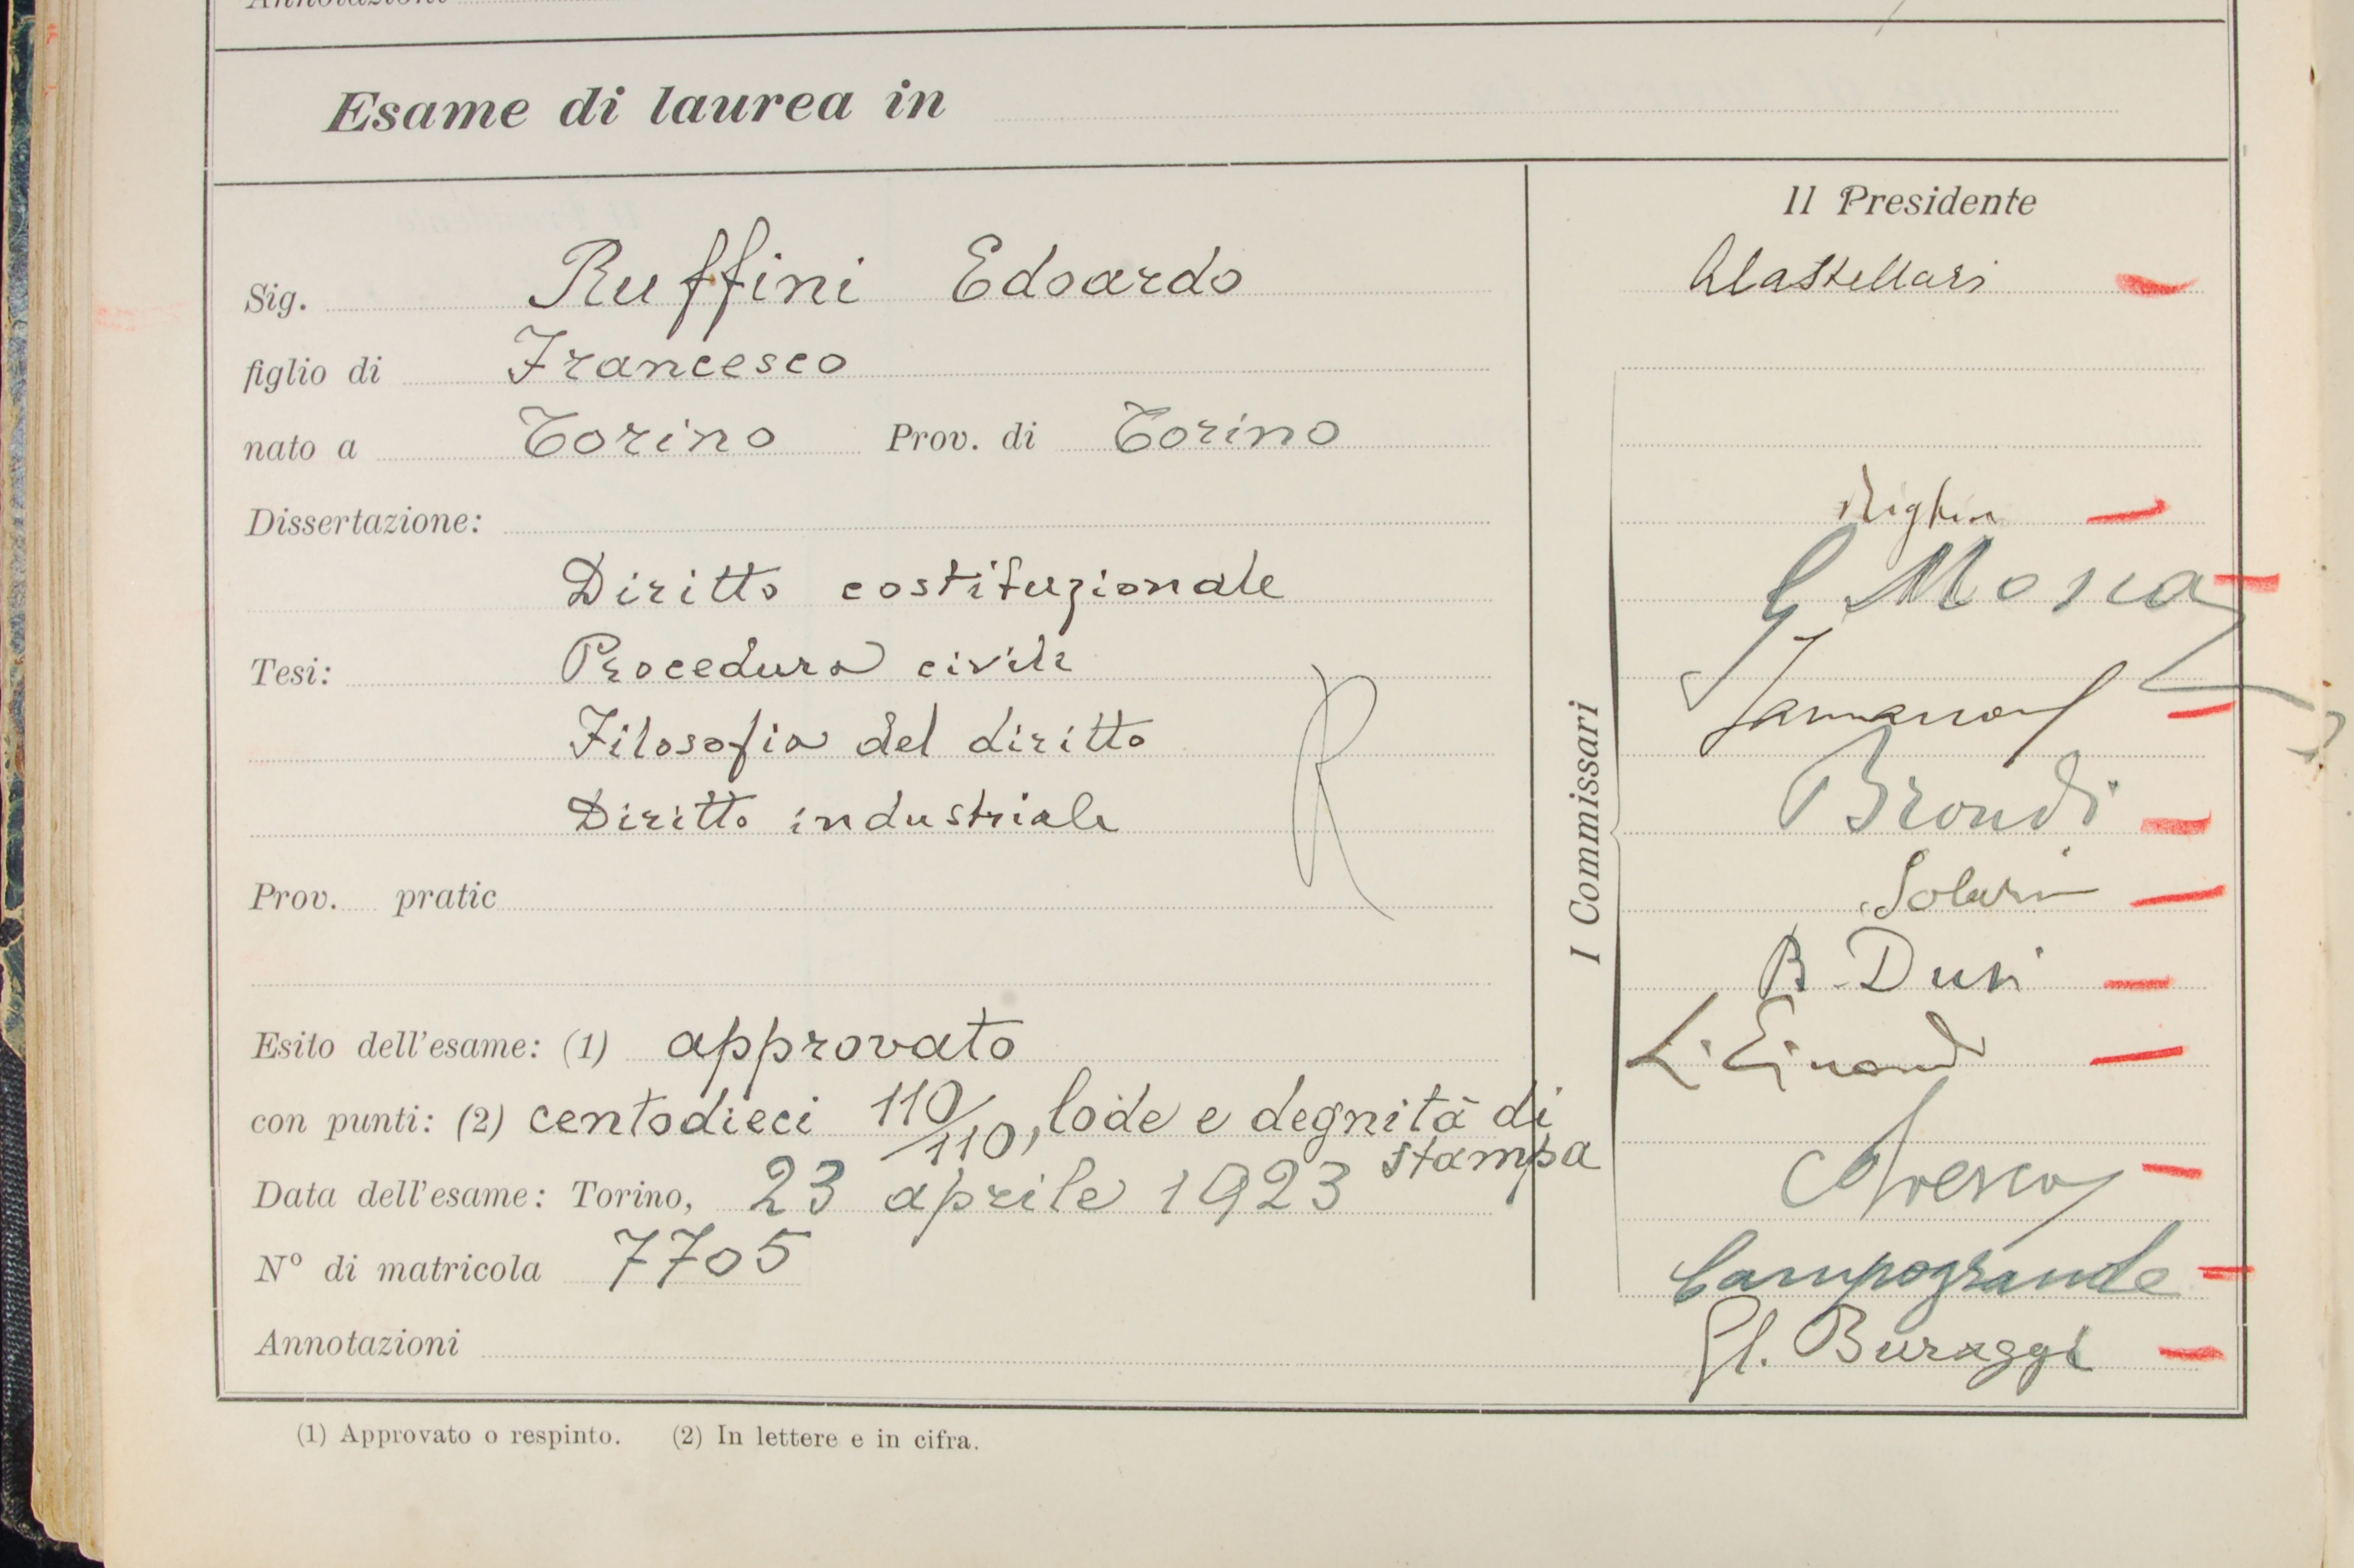 Annotazioni
Esame di laurea in
Il Presidente
Sig. Ruffini Edoardo
figlio di Francesco
nato a Torino Prov. di Torino
Dissertazione:
Diritto costituzionale
Tesi: Procedura civile
Filosofia del diritto
Diritto industriale
R
Prov. pratic
Esito dell'esame: (1) approvato
con punti: (2) centodieci 110/110, lode e degnità di
stampa
Data dell'esame: Torino, 23 aprile 1923
N° di matricola 7705
Annotazioni
I Commissari
G Mosca
Brondi
Solari
B. Dusi
L. Einaudi
Campogrande
Gl. Buraggi
(1) Approvato o respinto. (2) In lettere e in cifra.